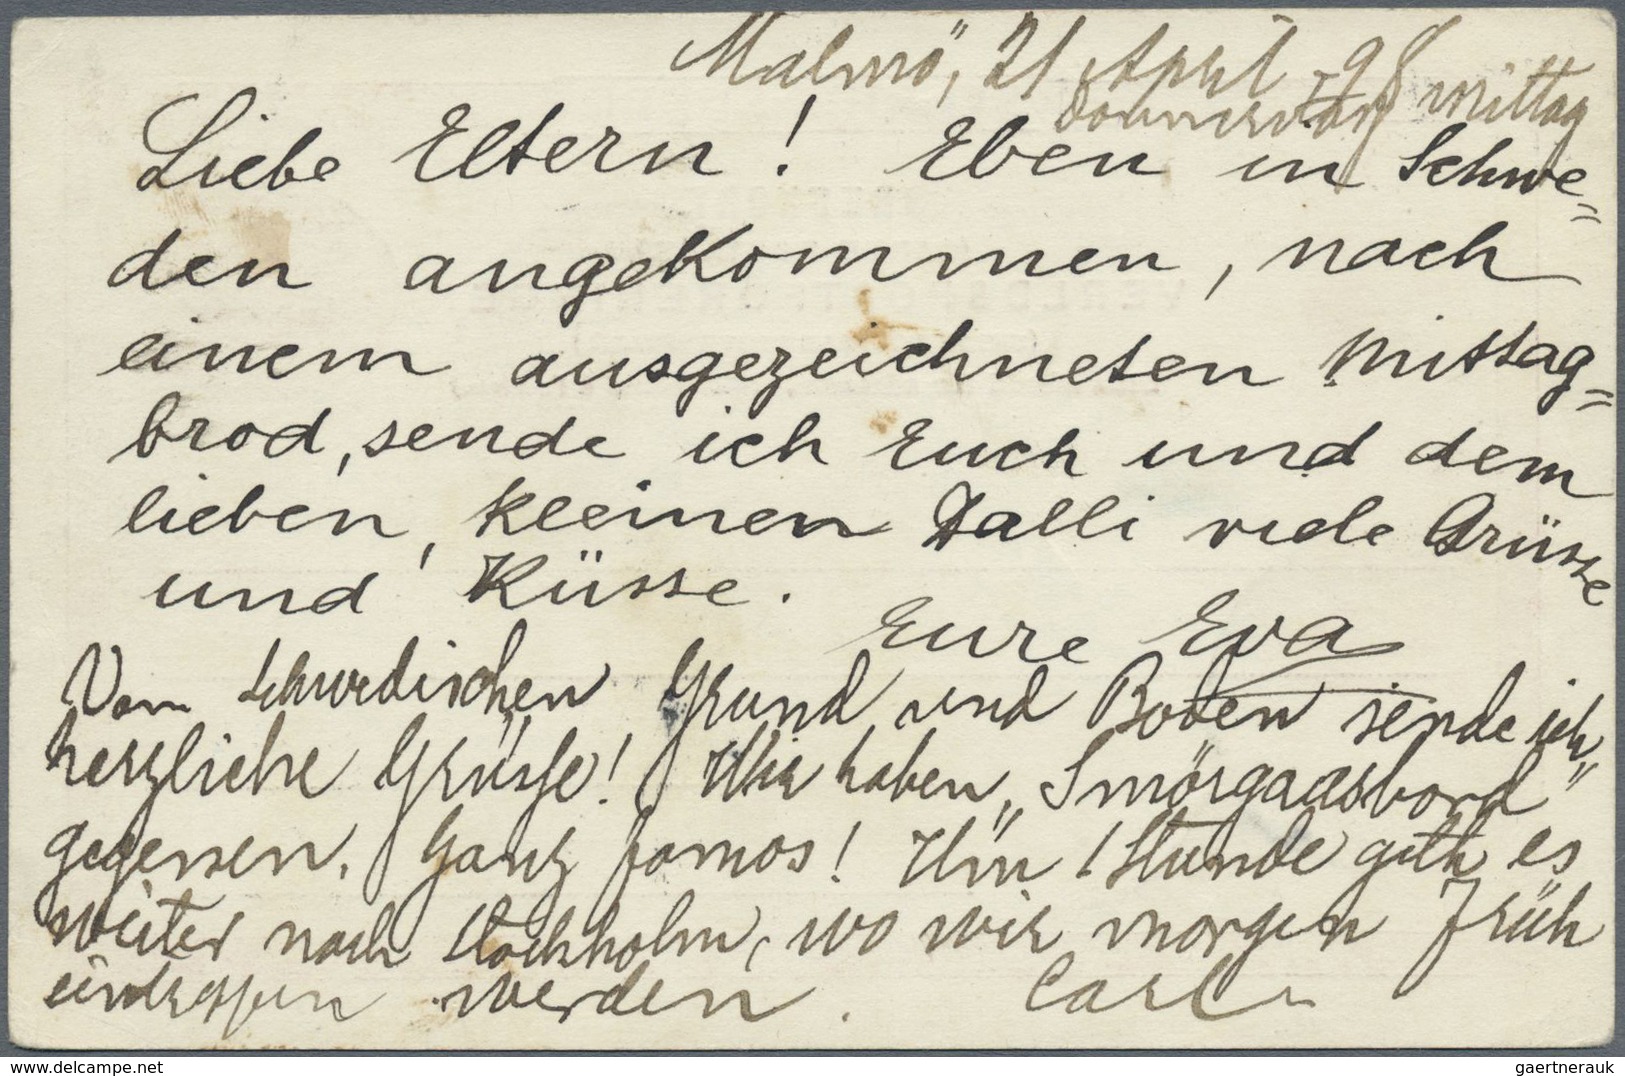 Malmö, 21 April -98 mittag
Donnerstag
Liebe Eltern! Eben in Schwe=
den angekommen, nach
einem ausgezeichneten Mittag=
brod, sende ich Euch und dem
lieben, kleinen Dalli viele Grüsse
und Küsse.
Eure Eva
Vom schwedischen Grund und Boden sende ich
herzliche Grüsse! Wir haben „Smörgaasbord"
gegessen. Ganz famos! Um 1 Stunde geth es
weiter nach Stockholm, wo wir morgen Früh
eintreffen werden. Carl
www.delcampe.net
gaertnerauk